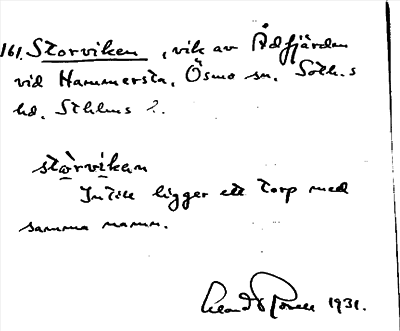 161. Storviken, vik av Ådfjärden
vid Hammersta, Ösmo sn. Soth.s
hd. Sthlms l.
stòrvikan
Intill ligger ett torp med
samma namn.
1931.